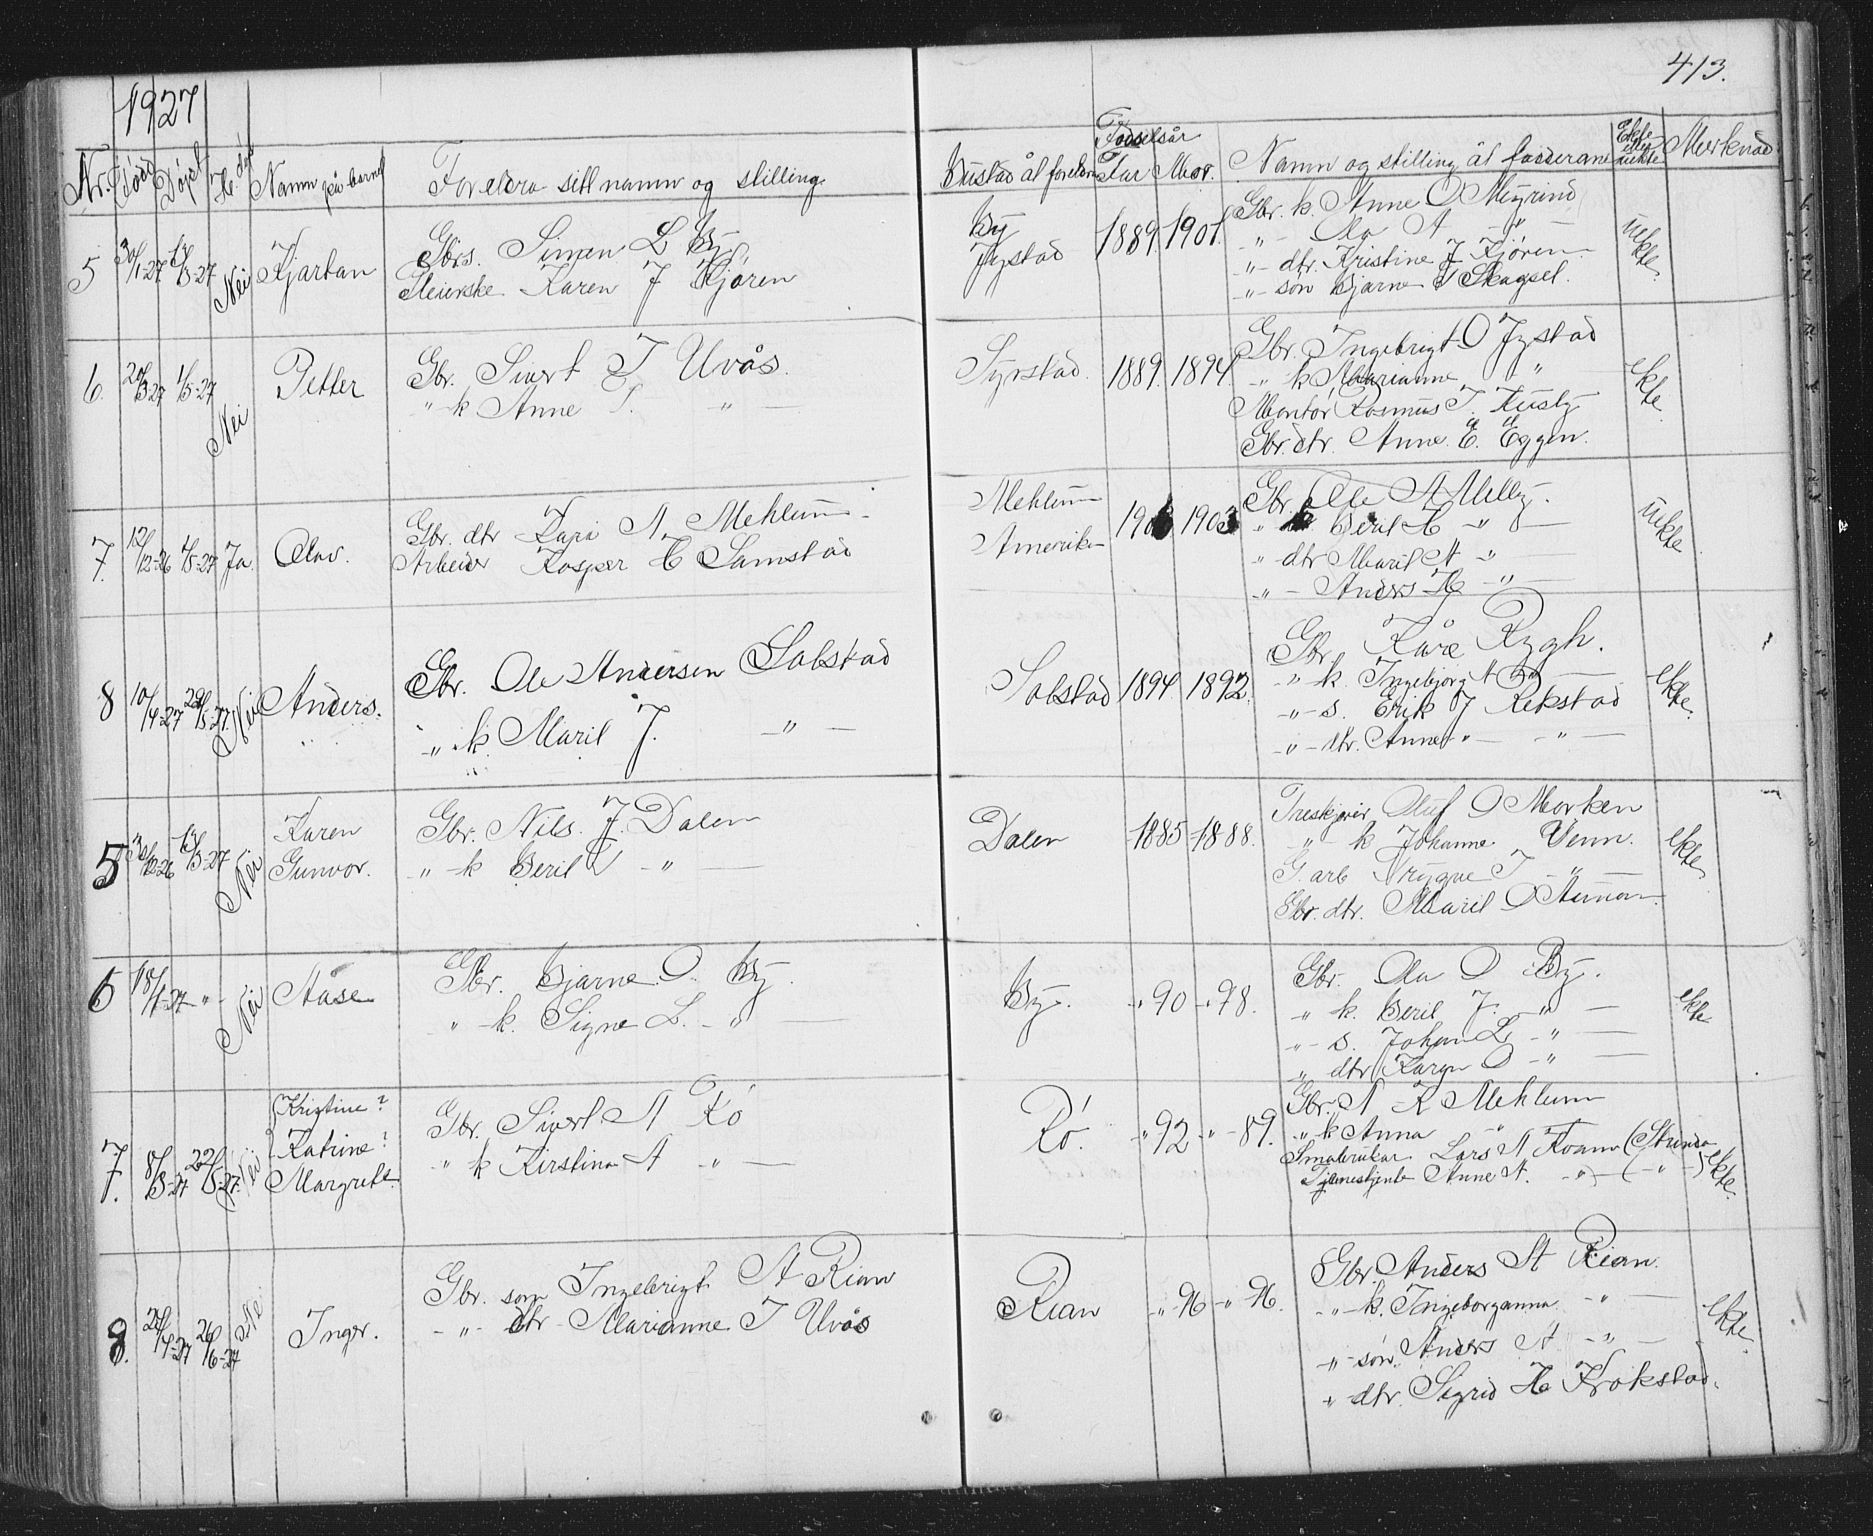 1927
413.
Nr. Fødd Døypt H. døpt Namn på barnet Foreldra sitt namn og stilling Bustad åt foreldra Fødselsår Far Mor. Namn og stilling åt fadderane Ekte eller uekte Merknad
5 30/1-27 6/3-27 Nei Kjartan
Gbrs. Simen L By
Meierske Karen J Kjøren
By
Jystad
1889. 1901.
Gbr. k. Anne O Myrind
" - Ola A - " -
" - dtr. Kristine J Kjøren
" - søn Bjarne J Skagsel.
uekte
6. 20/3-27 1/5-27 Nei Petter
Gbr. Sivert I Uvås.
" - k Anne I. - " -
Syrstad. 1889. 1894
Gbr. Ingebrigt O Jystad
" - k Marianne "
Montør Rasmus I. Husby
Gbr. dtr. Anne E. Eggen.
ekte.
7. 12/12-26 1/5-27 Ja. Olav.
Gbr. dtr Kari A Mehlum
Arbeider Kasper E Samstad
Mehlum
Amerika
1903
Gbr. Ole A Melby.
" k Beril H - " -
" - dtr Marit A - " -
" - Anders H - " -
uekte
8 10/4-27 29/5-27. Nei Anders.
Gbr. Ole Andersen Solstad
- " - k Marit J. - " -
Solstad 1894. 1892.
Gbr. Kåre Rygh.
" - k. Ingebjørg A - " -
- " - s. Erik J Rekstad
- " - dtr. Anne - " - - " -
ekte.
5 30/12-26 6/3-27 Nei Karen
Gunvor.
Gbr. Nils. J. Dalen
" - k Beril - " -
Dalen 1885 1888.
Treskjærer Oluf O Morken
- " - k Johanne Venn.
G. arb Trygve I - " -
Gbr. dtr. Marit O Aunan.
ekte
6 18/1-27 - " - Nei Aase
Gbr. Bjarne O. By.
" - k. Signe L. - " -
By. - " 90 - " 98.
Gbr. Ola O By.
" - k. Beril J. - " -
- " - s. Johan L. - " -
" dtr Karen O - " -
ekte
7. 8/3-27 22/5-27. Nei Kristine?
Katrine?
Margrete.
Gbr. Sivert A Rø
" - k Kirstina A - " -
Rø. - " 92 - " - 89.
Gbr. A K Mehlum
" - k Anna "
Småbrukar Lars A Kvam (Strinda
Tjenestjente Anne A. - " - ( - " - )
ekte.
8. 20/4-27 26/6-27 Nei Inger.
Gbr. søn Ingebrigt A Rian
- " - dtr Marianne I Uvås
Rian - " - 96 - " - 96.
Gbr. Anders A Rian.
- " - k. Ingeborganna - " -
- " - søn Anders A - " -
- " - dtr. Sigrid H Krokstad.
ekte.